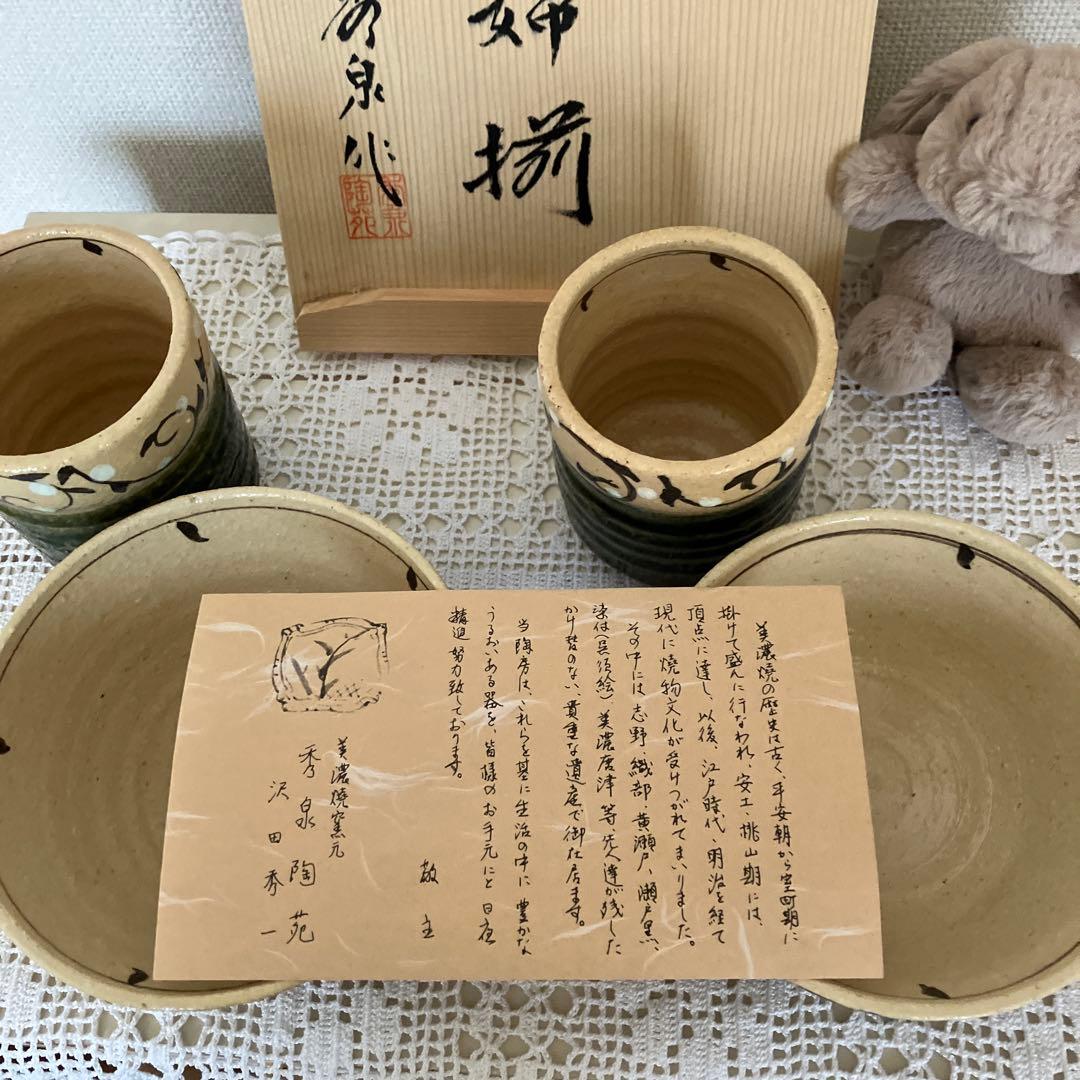 婦揃
秀泉作
秀泉
陶苑
美濃焼の歴史は古く、平安朝から室町期に
掛けて盛んに行なわれ、安土、桃山期には、
頂点に達し、以後、江戸時代、明治を経て
現代に焼物文化が受けつがれてまいりました。
その中には、志野、織部、黄瀬戸、瀬戸黒、
染付(呉須絵)、美濃唐津等、先人達が残した
かけ替のない、貴重な遺産で御在居ます。
当陶房は、これらを基に生活の中に豊かな
うるおいある器を、皆様のお手元にと日夜
精進努力致しております。
敬主
美濃焼窯元
秀泉陶苑
沢田秀一